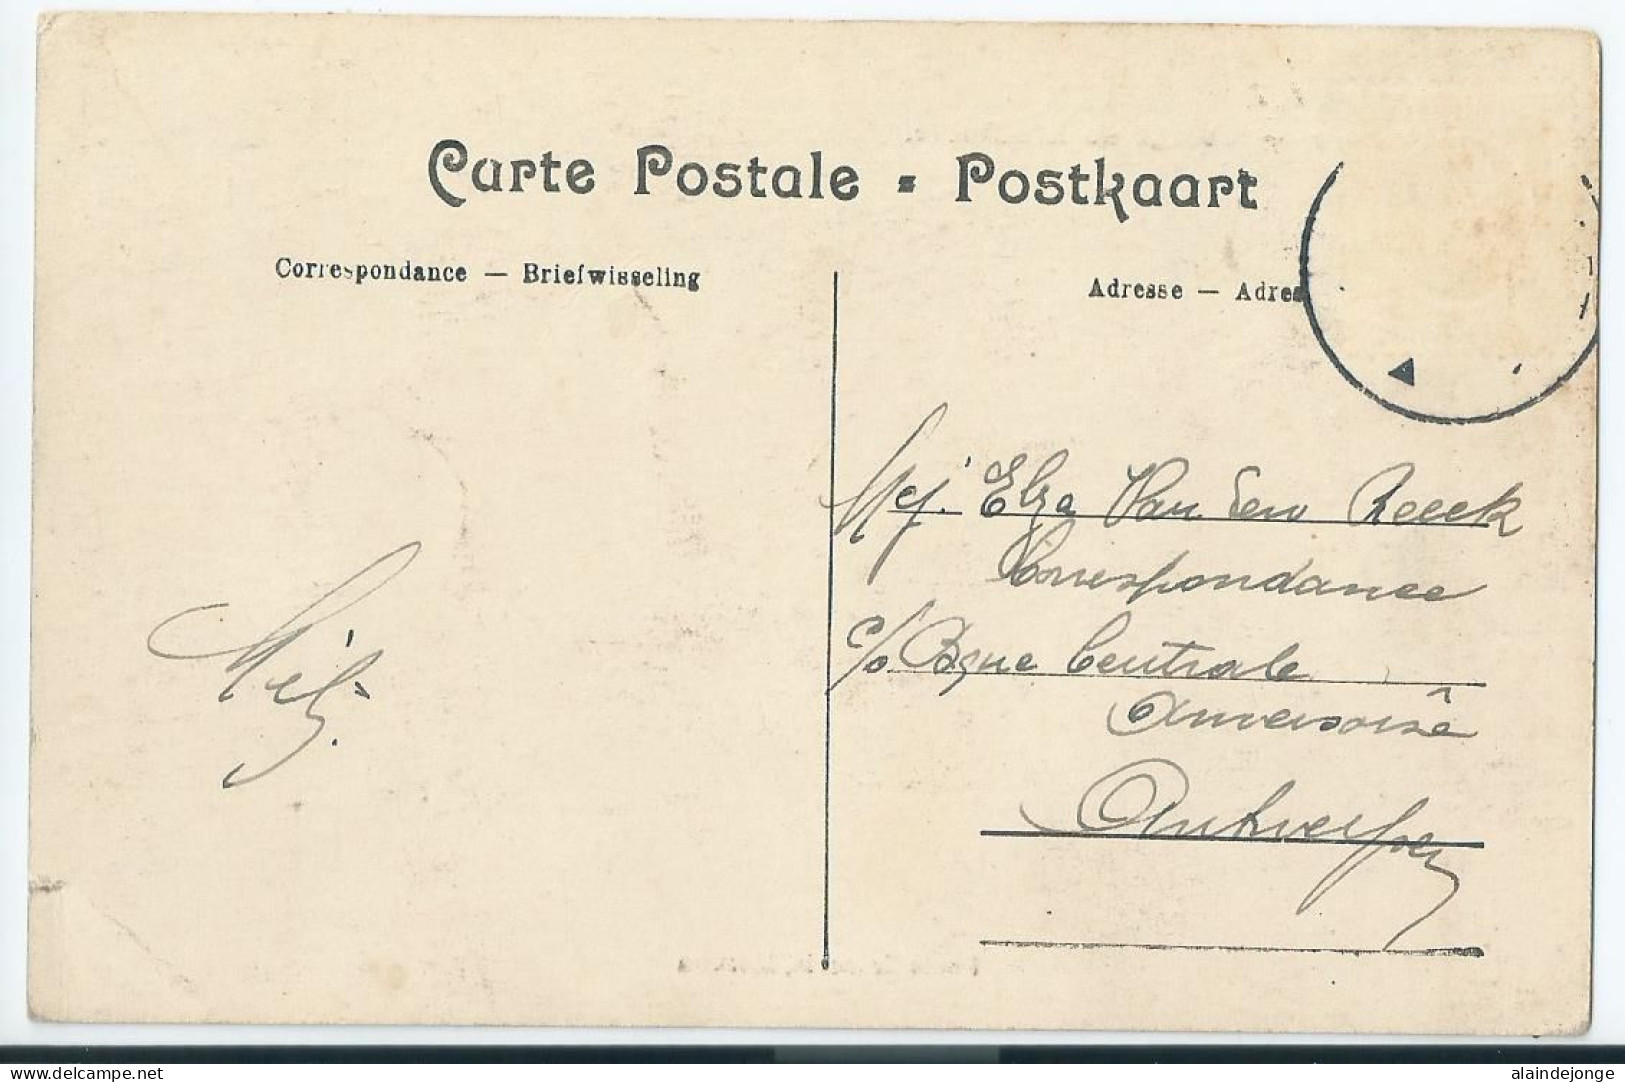 Carte Postale - Postkaart
Correspondance — Briefwisseling
Adresse — Adres
Mej. Elza Van den Reeck
Correspondance
c/o Bque Centrale
Anversoise
Antwerpen
delcampe.net
alaindejonge